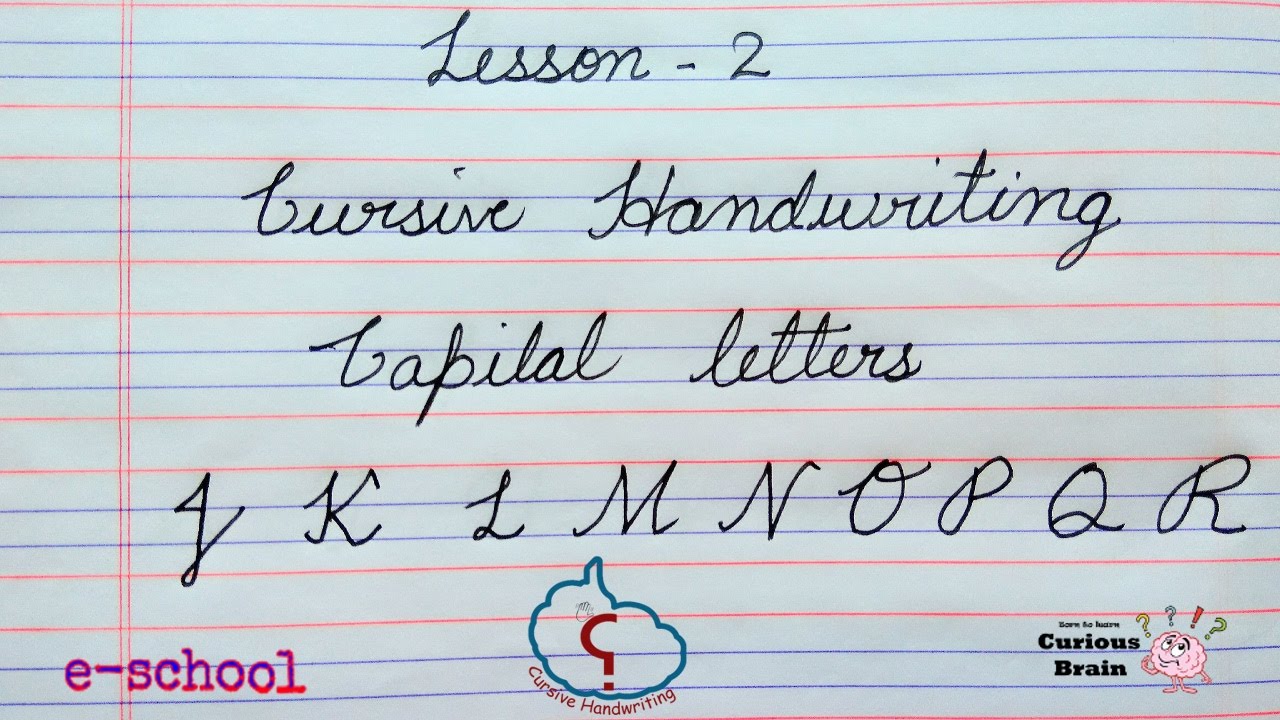 Lesson - 2
Cursive Handwriting
Capital letters
J K L M N O P Q R
e-school
Cursive Handwriting
Born to learn
Curious
Brain